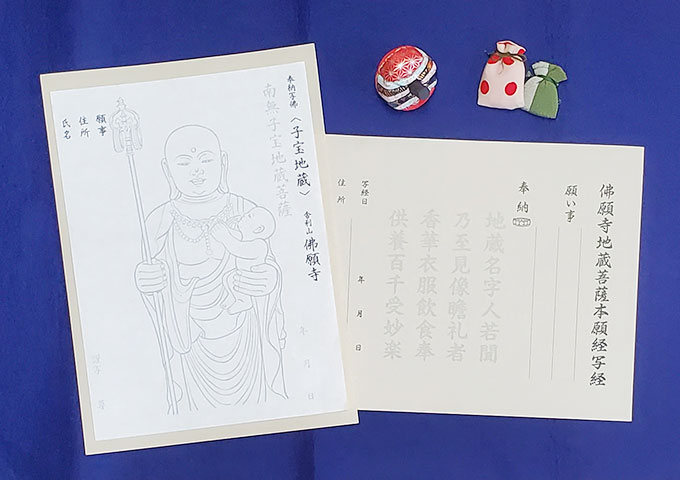 奉納写佛 〈子宝地蔵〉 舎利山 佛願寺
南無子宝地蔵菩薩
願事
住所
氏名
年 月 日
佛願寺地蔵菩薩本願経写経
願い事
奉納
地蔵名字人若聞
乃至見像瞻礼者
香華衣服飲食奉
供養百千受妙楽
写経日 年 月 日
住所